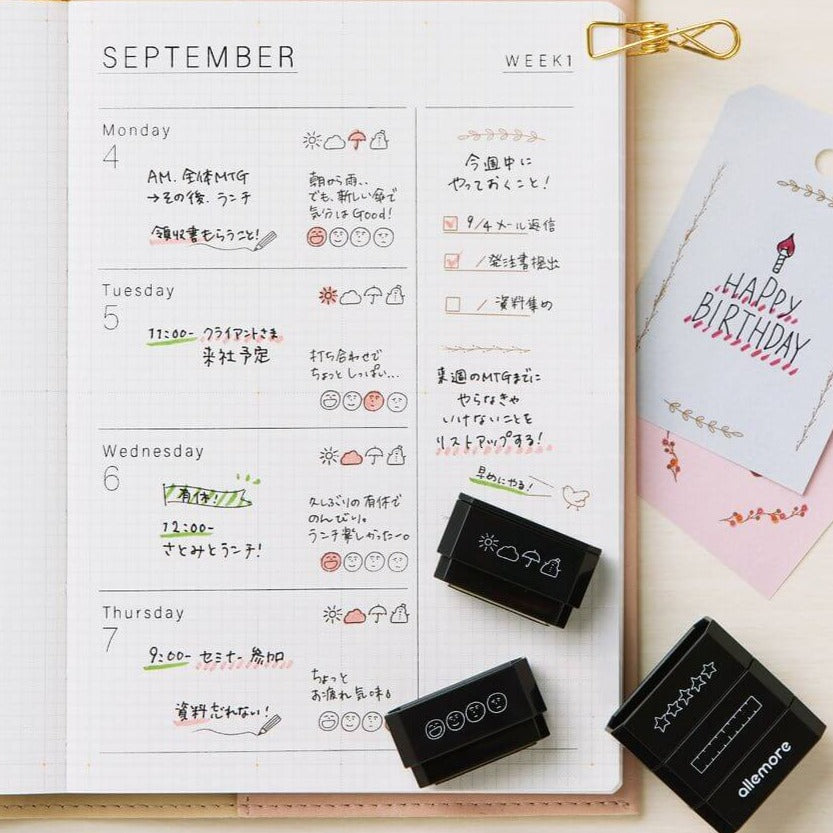 SEPTEMBER
WEEK1
Monday
4
AM. 全体MTG
→その後. ランチ
領収書もらうこと!
朝から雨..
でも、新しい傘で
気分はGood!
Tuesday
5
11:00- クライアントさま
来社予定
打ち合わせで
ちょっとしっぱい...
Wednesday
6
有休!
12:00-
さとみとランチ!
久しぶりの有休で
のんびり。
ランチ楽しかったー。
Thursday
7
9:00- セミナー参加
資料忘れない!
ちょっと
お疲れ気味
今週中に
やっておくこと!
9/4 メール返信
/ 発注書提出
/ 資料集め
来週のMTGまでに
やらなきゃ
いけないことを
リストアップする!
早めにやる!
HAPPY
BIRTHDAY
allemore